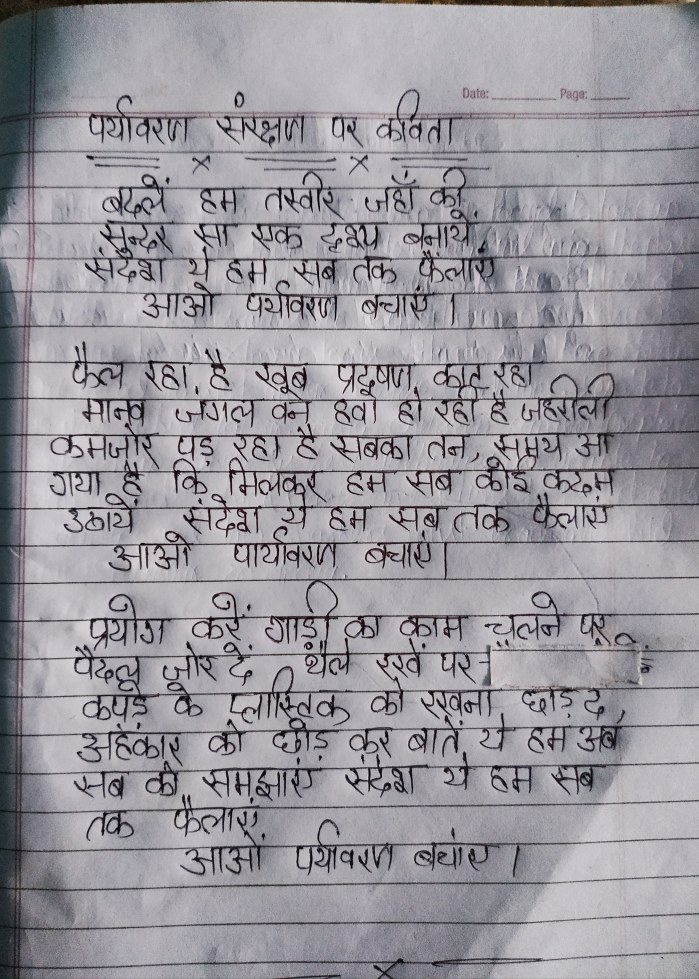 Date: Page:
पर्यावरण संरक्षण पर कविता
बदलें हम तस्वीर जहाँ की
सुन्दर सा एक दृश्य बनायें,
संदेश ये हम सब तक फैलाएं
आओ पर्यावरण बचाएं।
फैल रहा है खूब प्रदूषण काट रहा
मानव जंगल वन हवा हो रही है जहरीली
कमजोर पड़ रहा है सबका तन, समय आ
गया है कि मिलकर हम सब कोई कदम
उठायें संदेश ये हम सब तक फैलाएं
आओ पार्यावरण बचाएं।
प्रयोग करें गाड़ी का काम चलने पर
पैदल जोर दें थैले रखें पर
कपड़े के प्लास्तिक को रखना छोड़ दें,
अहंकार को छोड़ कर बातें ये हम अब
सब को समझाएं संदेश ये हम सब
तक फैलाएं
आओं पर्यावरण बचांए।